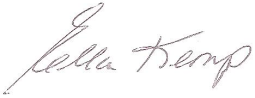 Ella Kemp